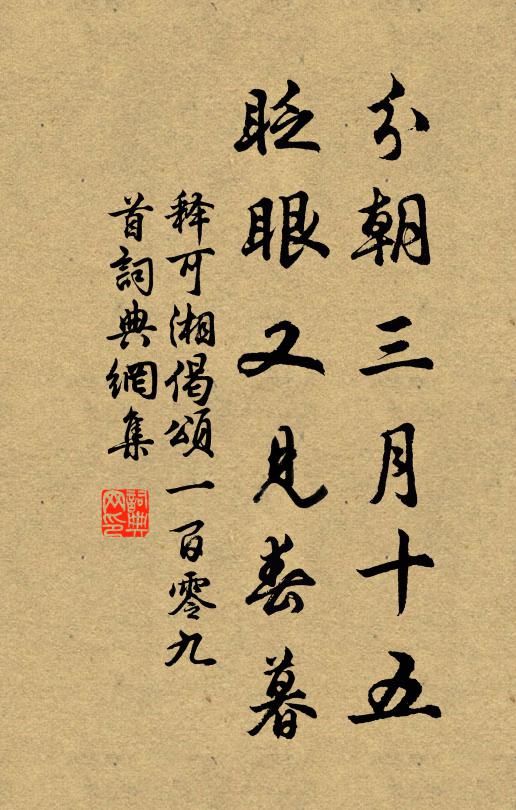 分朝三月十五
眨眼又见春暮
释可湘偈頌一百零九
首詞典網集
詞典网印